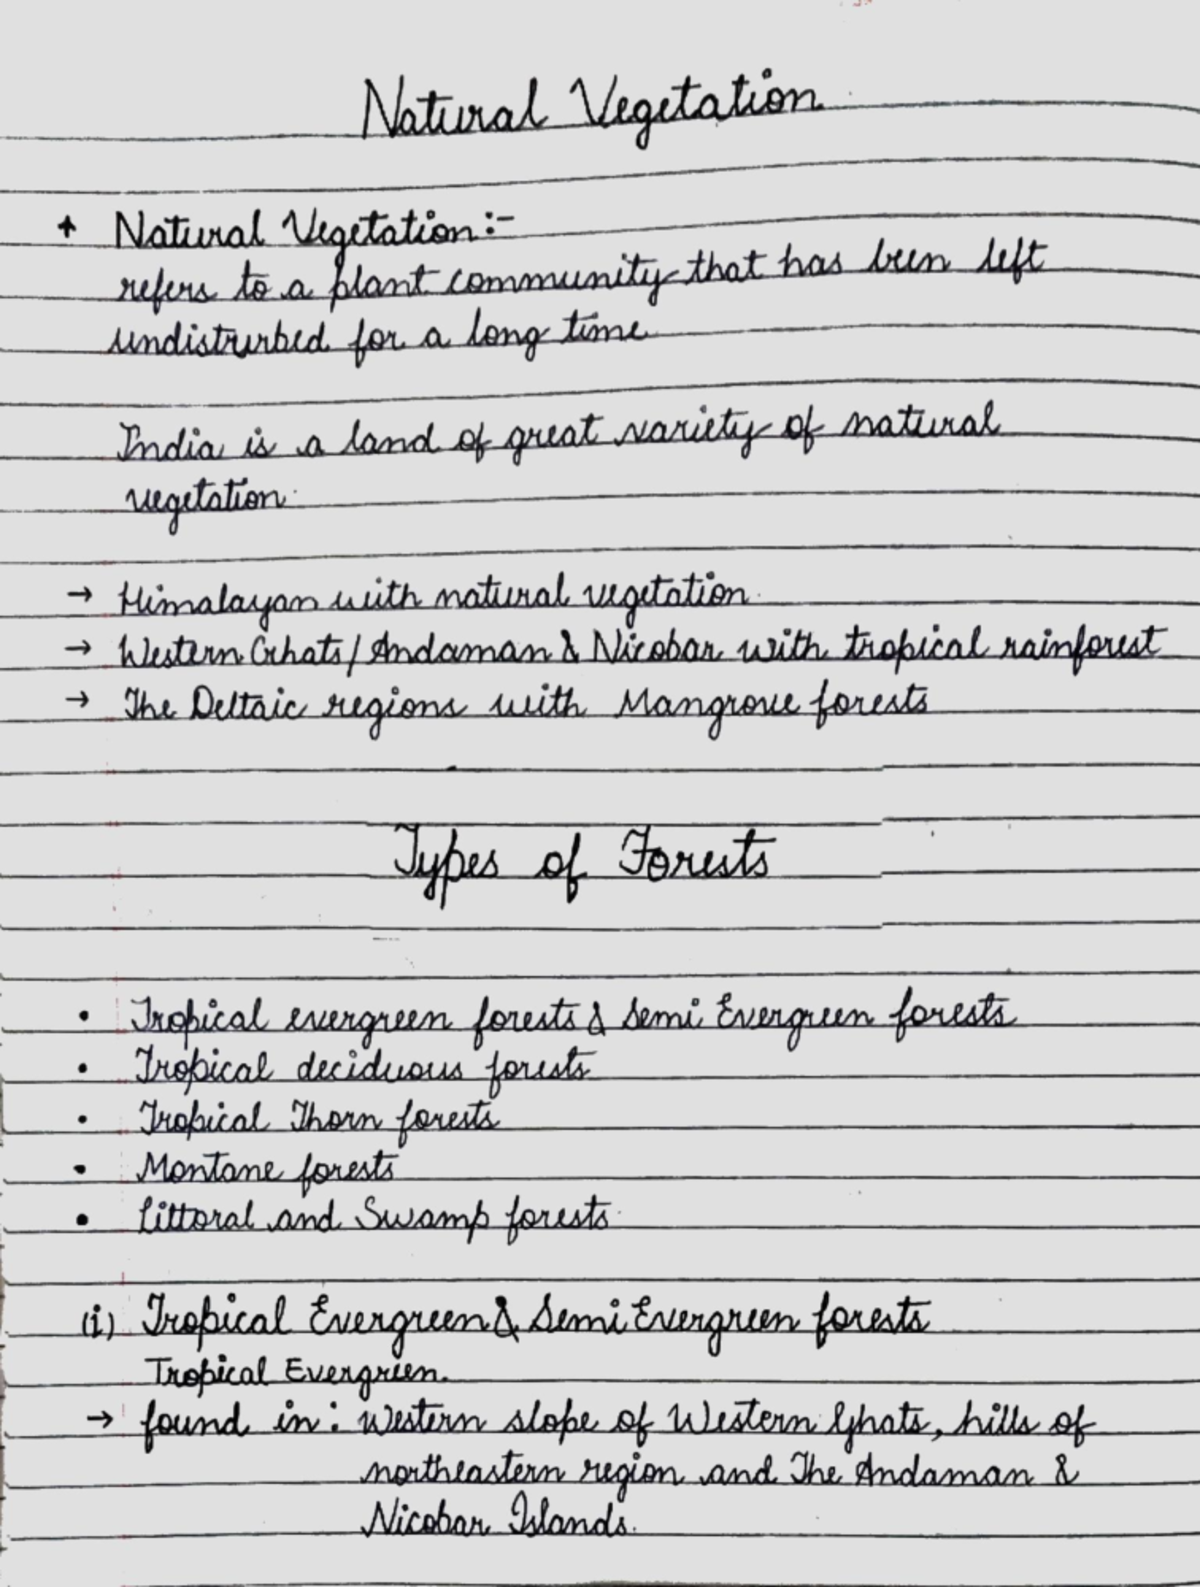 Natural Vegetation
+ Natural Vegetation:-
refers to a plant community that has been left
undisturbed for a long time
India is a land of great variety of natural
vegetation.
→ Himalayan with natural vegetation.
→ Western Ghats/Andaman & Nicobar with tropical rainforest
→ The Deltaic regions with Mangrove forests
Types of Forests
• Tropical evergreen forests & Semi Evergreen forests
• Tropical deciduous forests
• Tropical Thorn forests
• Montane forests
• Littoral and Swamp forests.
(i) Tropical Evergreen & Semi Evergreen forests
Tropical Evergreen.
→ found in: Western slope of Western Ghats, hills of
northeastern region and The Andaman &
Nicobar Islands.